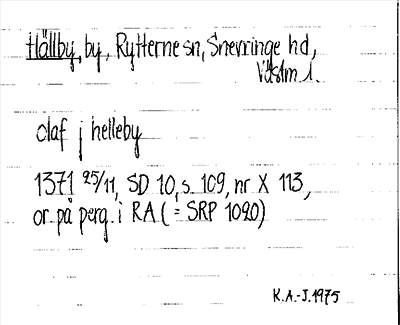 Hällby, by, Rytterne sn, Snevringe hd,
Västm l.
olaf j helleby
1371 25/11, SD 10, s. 109, nr X 113,
or. på perg. i RA (= SRP 1020)
K.A.-J. 1975